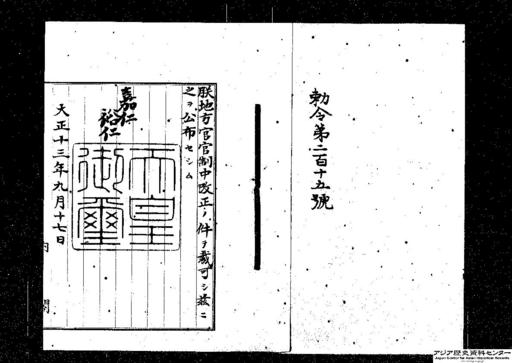 勅令第二百十五號
朕地方官官制中改正ノ件ヲ裁可シ茲ニ
之ヲ公布セシム
嘉仁
裕仁
天皇
御璽
大正十三年九月十七日
内閣
アジア歴史資料センター
Japan Center for Asian Historical Records